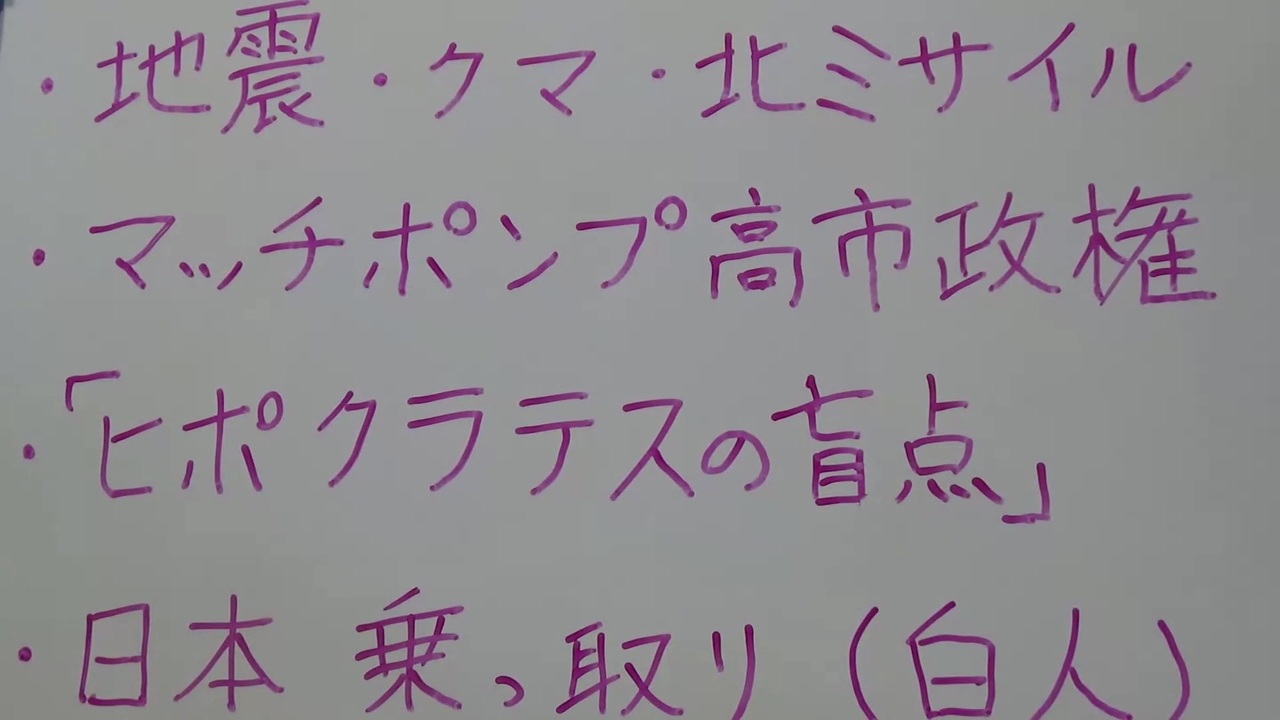 ・地震・クマ・北ミサイル
・マッチポンプ高市政権
・「ヒポクラテスの盲点」
・日本 乗っ取り(白人)